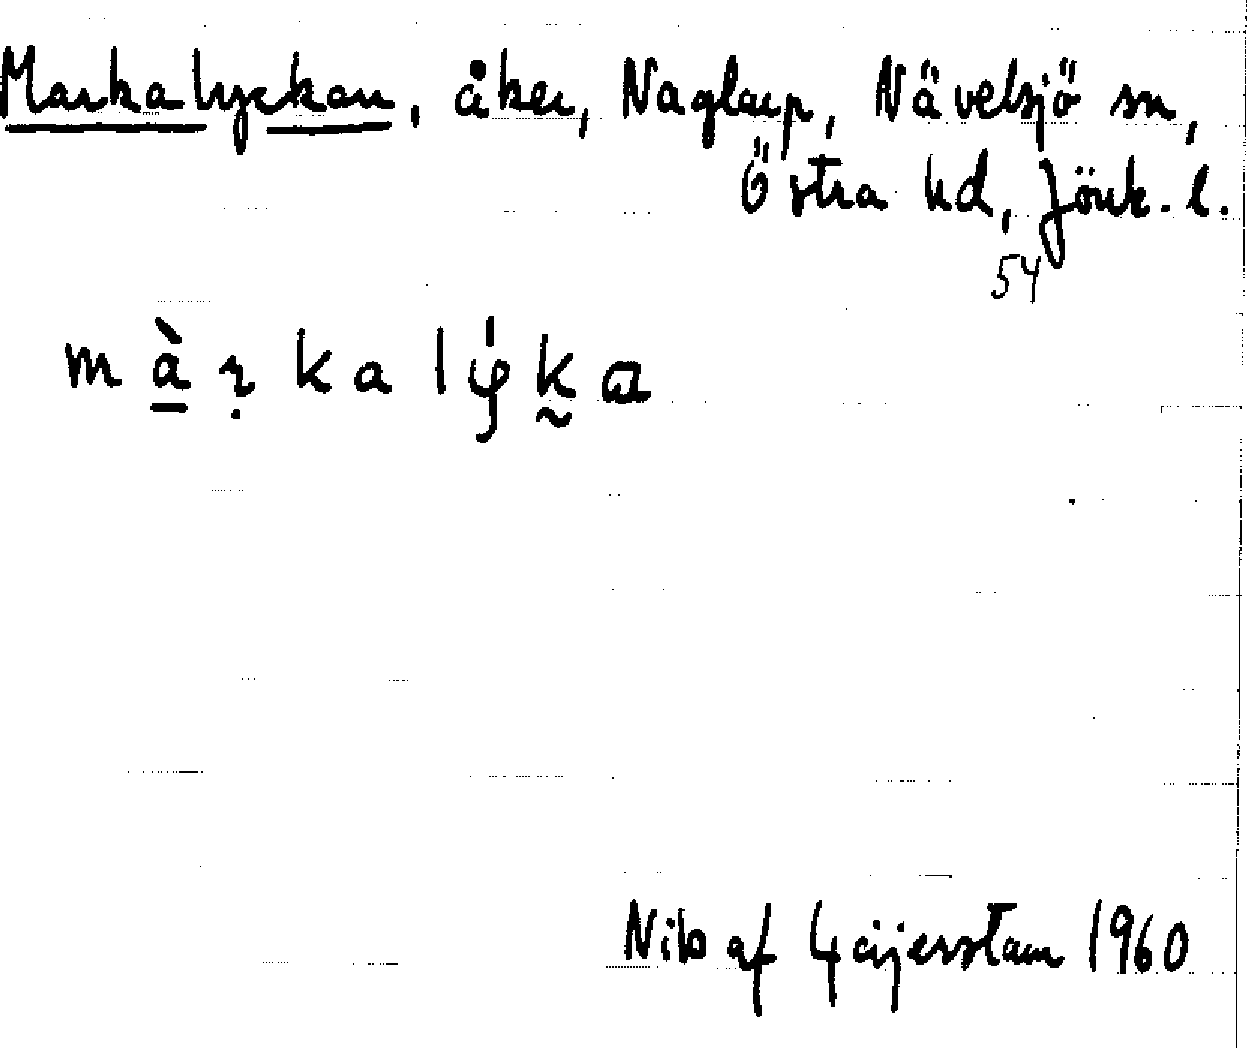 Markalyckan, åker, Naglarp, Nävelsjö sn,
Östra hd, Jönk. l.
54
màrkalyka
Nils af Geijerstam 1960